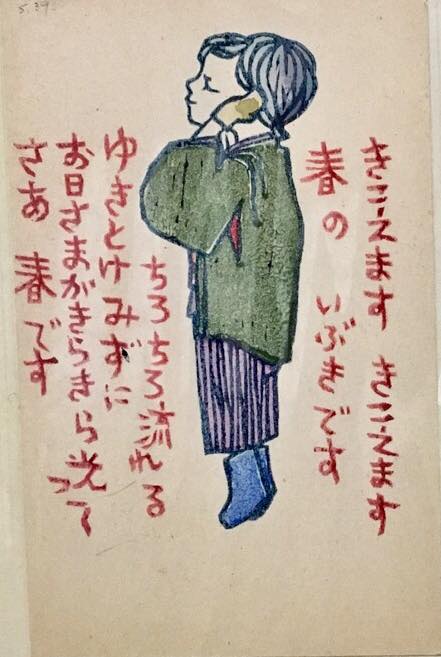 きこえます きこえます
春の いぶきです
ちろちろ流れる
ゆきとけみずに
お日さまがきらきら光って
さあ 春です
5.39.